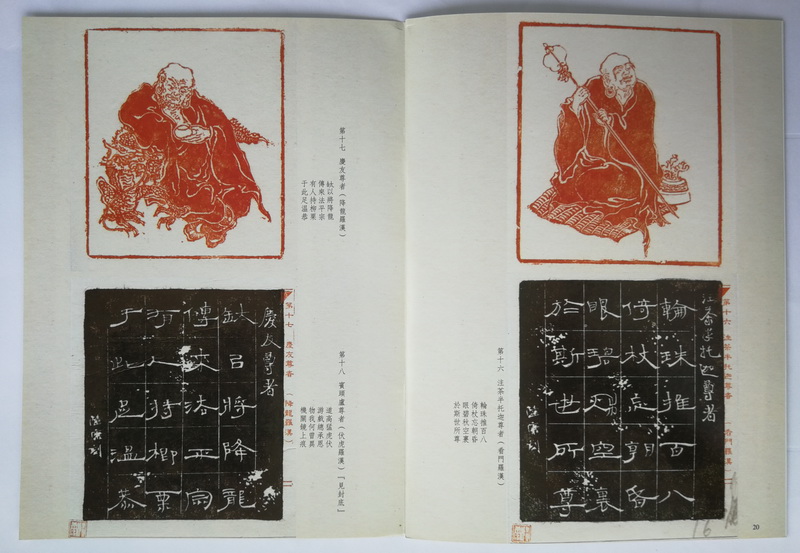 第十六 注茶半托迦尊者（看門羅漢）
注茶半托迦尊者
輪珠推百八
倚杖忘朝昏
眼碧秋空裏
於斯世所尊
第十六 注茶半托迦尊者（看門羅漢）
輪珠推百八
倚杖忘朝昏
眼碧秋空裏
於斯世所尊
20
16
第十七 慶友尊者（降龍羅漢）
缽以將降龍
傳來法平宗
有人持柳栗
于此足溫恭
第十八 賓頭盧尊者（伏虎羅漢）「見封底」
道高猛虎伏
物我何曾異
機關鏡上痕
第十七 慶友尊者（降龍羅漢）
慶友尊者
缽㠯將降龍
傳來法平宗
有人持柳栗
于此足溫恭